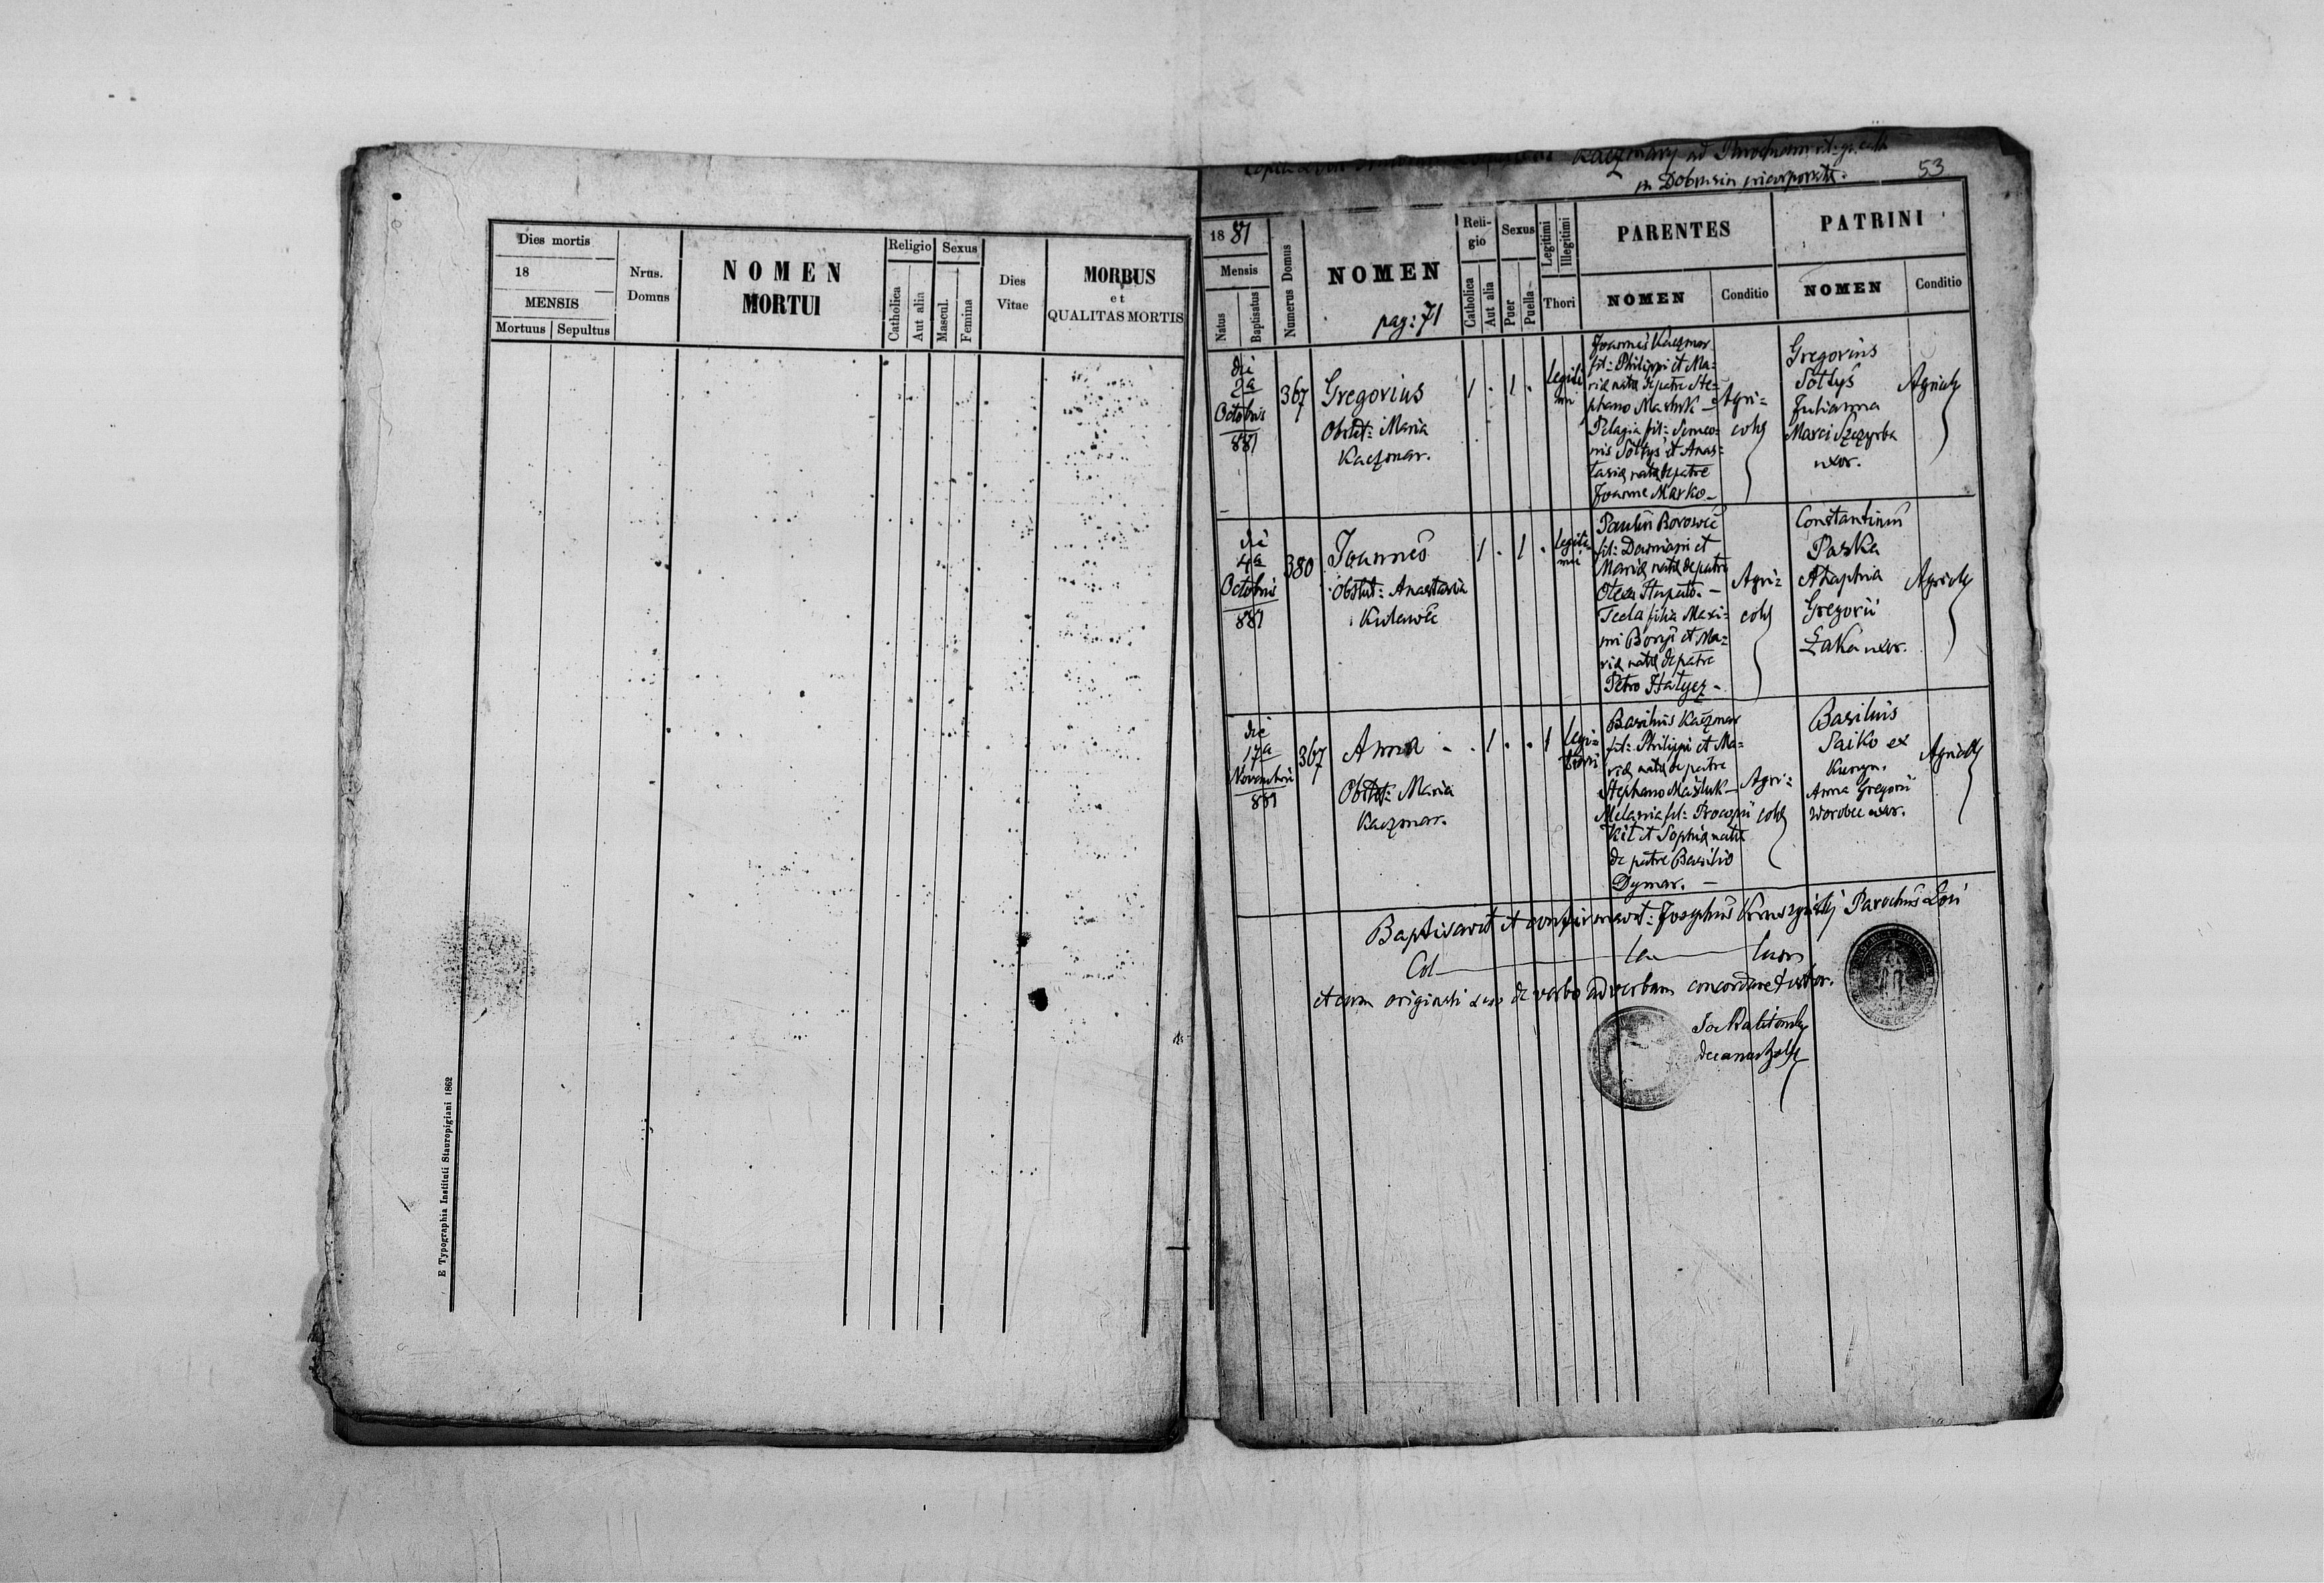 Dies mortis
18
MENSIS
Mortuus Sepultus
Nrus.
Domus
NOMEN
MORTUI
Religio
Catholica
Aut alia
Sexus
Mascul.
Femina
Dies
Vitae
MORBUS
et
QUALITAS MORTIS
E Typographia Instituti Stauropigiani 1862
Kaczmary ad Parochiam rit: gr. cath
in Dobrosin incorporatae.
53
1881
Mensis
Natus
Baptisatus
Numerus Domus
NOMEN
pag: 71
Reli-
gio
Catholica
Aut alia
Sexus
Puer
Puella
Legitimi
Illegitimi
Thori
PARENTES
NOMEN
Conditio
PATRINI
NOMEN
Conditio
die
2a
Octobris
881
367
Gregorius
Obstet: Maria
Kaczmar.
1 . 1 .
legiti
mi
Joannes Kaczmar
fil: Philippi et Ma-
riæ natæ de patre Ste-
phano Masluk —
Pelagia fil: Simeo-
nis Sołtys et Anas-
tasiæ natæ de patre
Joanne Marko —
Agri=
colæ
Gregorius
Sołtys
Julianna
Marci Szczyrba
uxor.
Agricolæ
die
4a
Octobris
881
380
Joannes
Obstet: Anastasia
1 . 1 .
legiti-
mi
Paulus Borowiec
fil: Damiani et
Mariæ natæ de patre
Tecla filia Maxi-
mi et Ma-
riæ natæ de patre
Petro Hałycz —
Agri=
colæ
Constantinus
Paska
Ahaphia
Gregorii
Łaka uxor.
Agricolæ
die
17a
Novembris
881
367
Anna
Obstet: Maria
Kaczmar.
. 1 . . 1
legi-
timi
Basilius Kaczmar
fil: Philippi et Ma=
riæ natæ de patre
Stephano Maśluk —
Melania fil: Procopii
Kit et Sophiæ natæ
de patre Basilio
Dymar. —
Agri=
colæ
Basilius
Saiko ex
Anna Gregorii
Worobec uxor.
Agricolæ
Baptisavit et confirmavit: Josephus Parochus Loci
et cum originali suo de verbo ad verbum concordare